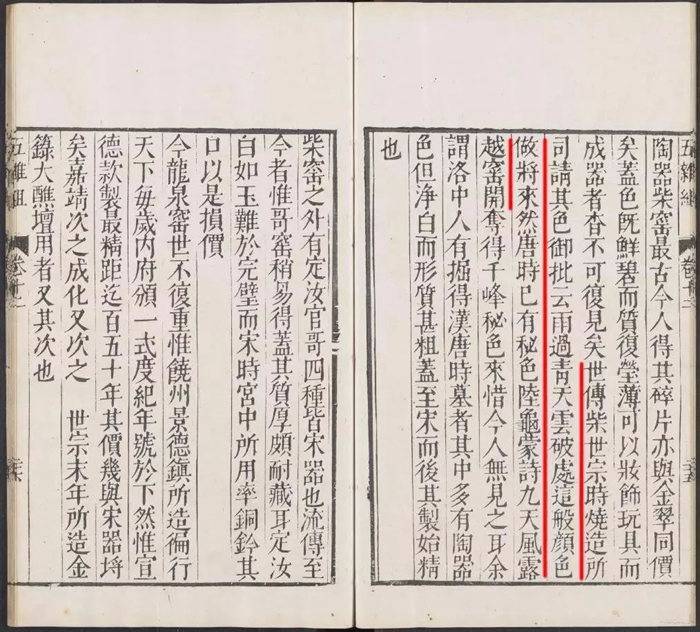 五雜組
卷十二
陶器柴窑最古今人得其碎片亦與金翠同價
矣蓋色旣鮮碧而質復瑩薄可以妝飾玩具而
成器者杳不可復見矣世傳柴世宗時燒造所
司請其色御批云雨過青天雲破處這般顏色
做將來然唐時已有秘色陸龜蒙詩九天風露
越窑開奪得千峰秘色來惜今人無見之耳余
謂洛中人有掘得漢唐時墓者其中多有陶器
色但淨白而形質甚粗蓋至宋而後其製始精
也
柴窑之外有定汝官哥四種皆宋器也流傳至
今者惟哥窑稍易得蓋其質厚頗耐藏耳定汝
白如玉難於完璧而宋時宮中所用率銅鈐其
口以是損價
今龍泉窑世不復重惟饒州景德鎮所造徧行
天下每歲內府頒一式度紀年號於下然惟宣
德款製最精距迄百五十年其價幾與宋器埒
矣嘉靖次之成化又次之　世宗末年所造金
籙大醮壇用者又其次也
五雜組
卷十二